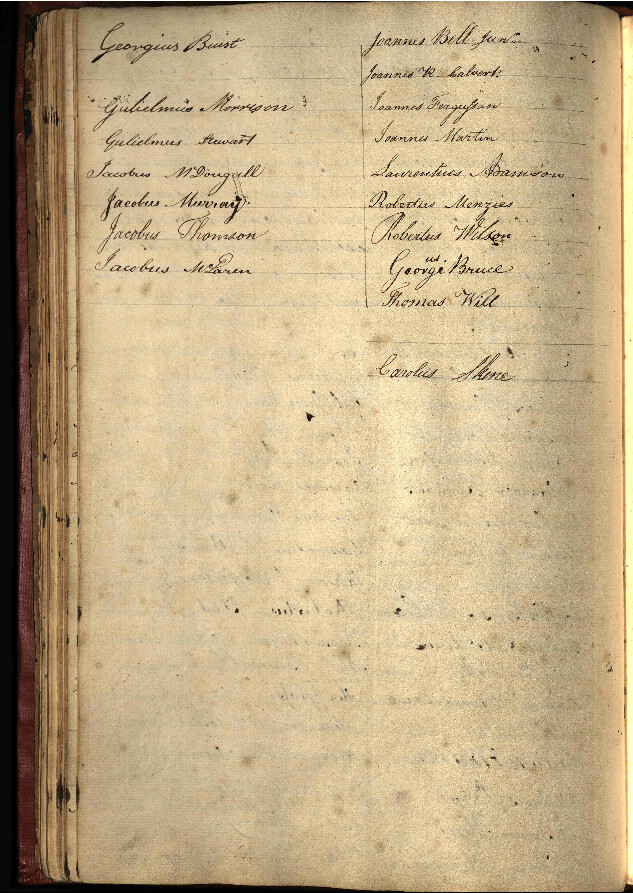 Georgius Buist
Gulielmus Morrison
Gulielmus Stewart
Jacobus McDougall
Jacobus Murray
Jacobus Thomson
Jacobus McLaren
Joannes Bell Junr
Joannes R Calvert
Joannes Fergusson
Joannes Martin
Laurentius Adamson
Robertus Menzies
Robertus Wilson
Georgius Bruce
Thomas Will
Carolus Skene